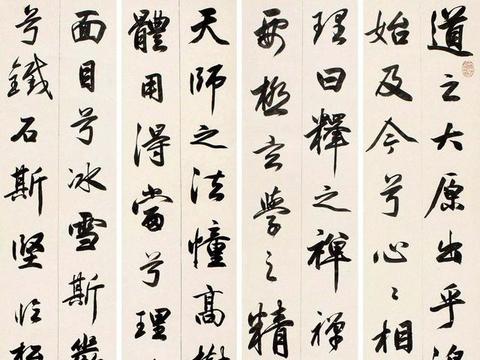 道之大原出乎
始及今兮心〻相
理曰釋之禪禪
要極玄學之精
天師之法幢高樹
體用得當兮理
面目兮冰雪斯
兮鐵石斯堅臨